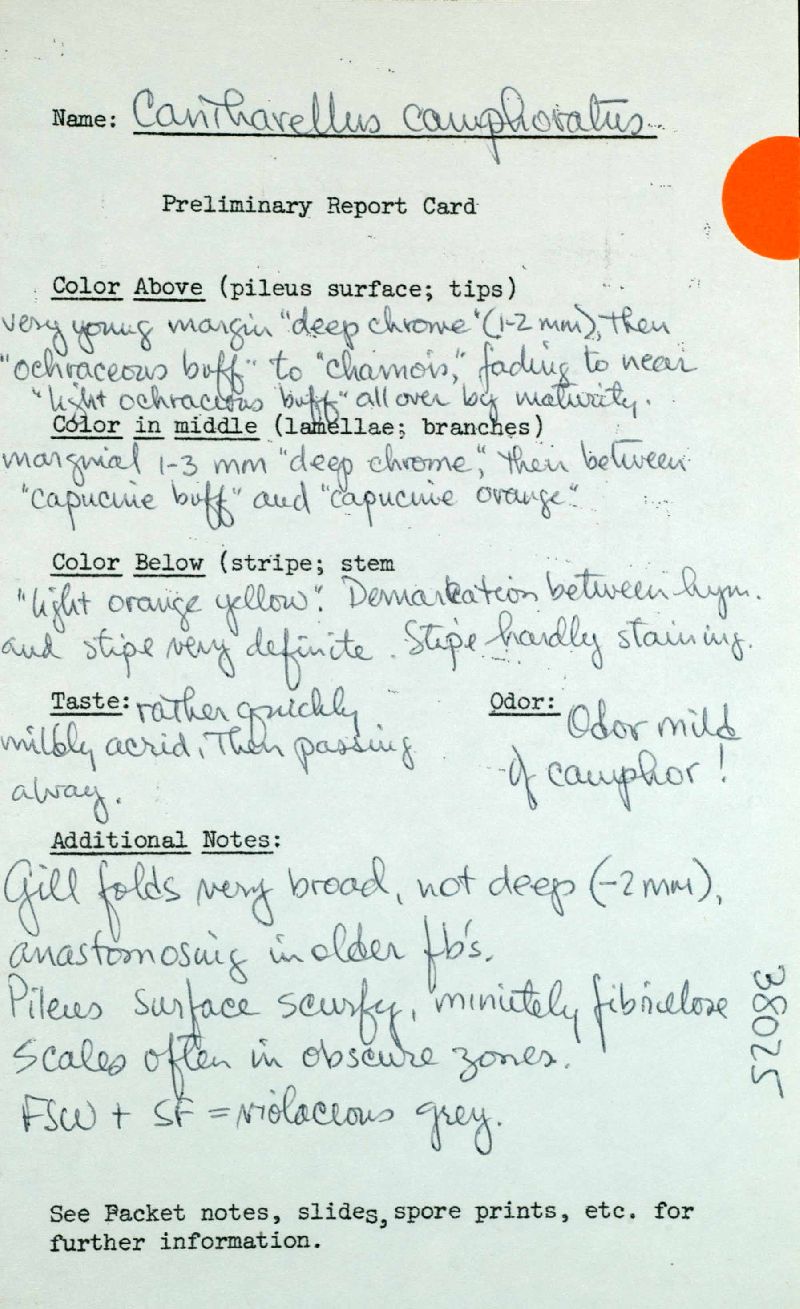 Name: Cantharellus camphoratus
Preliminary Report Card
Color Above (pileus surface; tips)
very young margin "deep chrome" (1-2 mm), then
"ochraceous buff" to "chamois," fading to near
"light ochraceous buff" all over by maturity.
Color in middle (lamellae; branches)
marginal 1-3 mm "deep chrome", then between
"capucine buff" and "capucine orange".
Color Below (stripe; stem
"light orange yellow". Demarkation between hym.
and stipe very definite. Stipe hardly staining.
Taste: rather quickly
mildly acrid, then passing
away.
Odor: Odor mild
of camphor!
Additional Notes:
Gill folds very broad, not deep (-2 mm),
anastomosing in older fb's.
Pileus surface scurfy, minutely fibrillose
scales often in obscure zones.
FSW + SF = violaceous grey.
38025
See Packet notes, slides, spore prints, etc. for
further information.